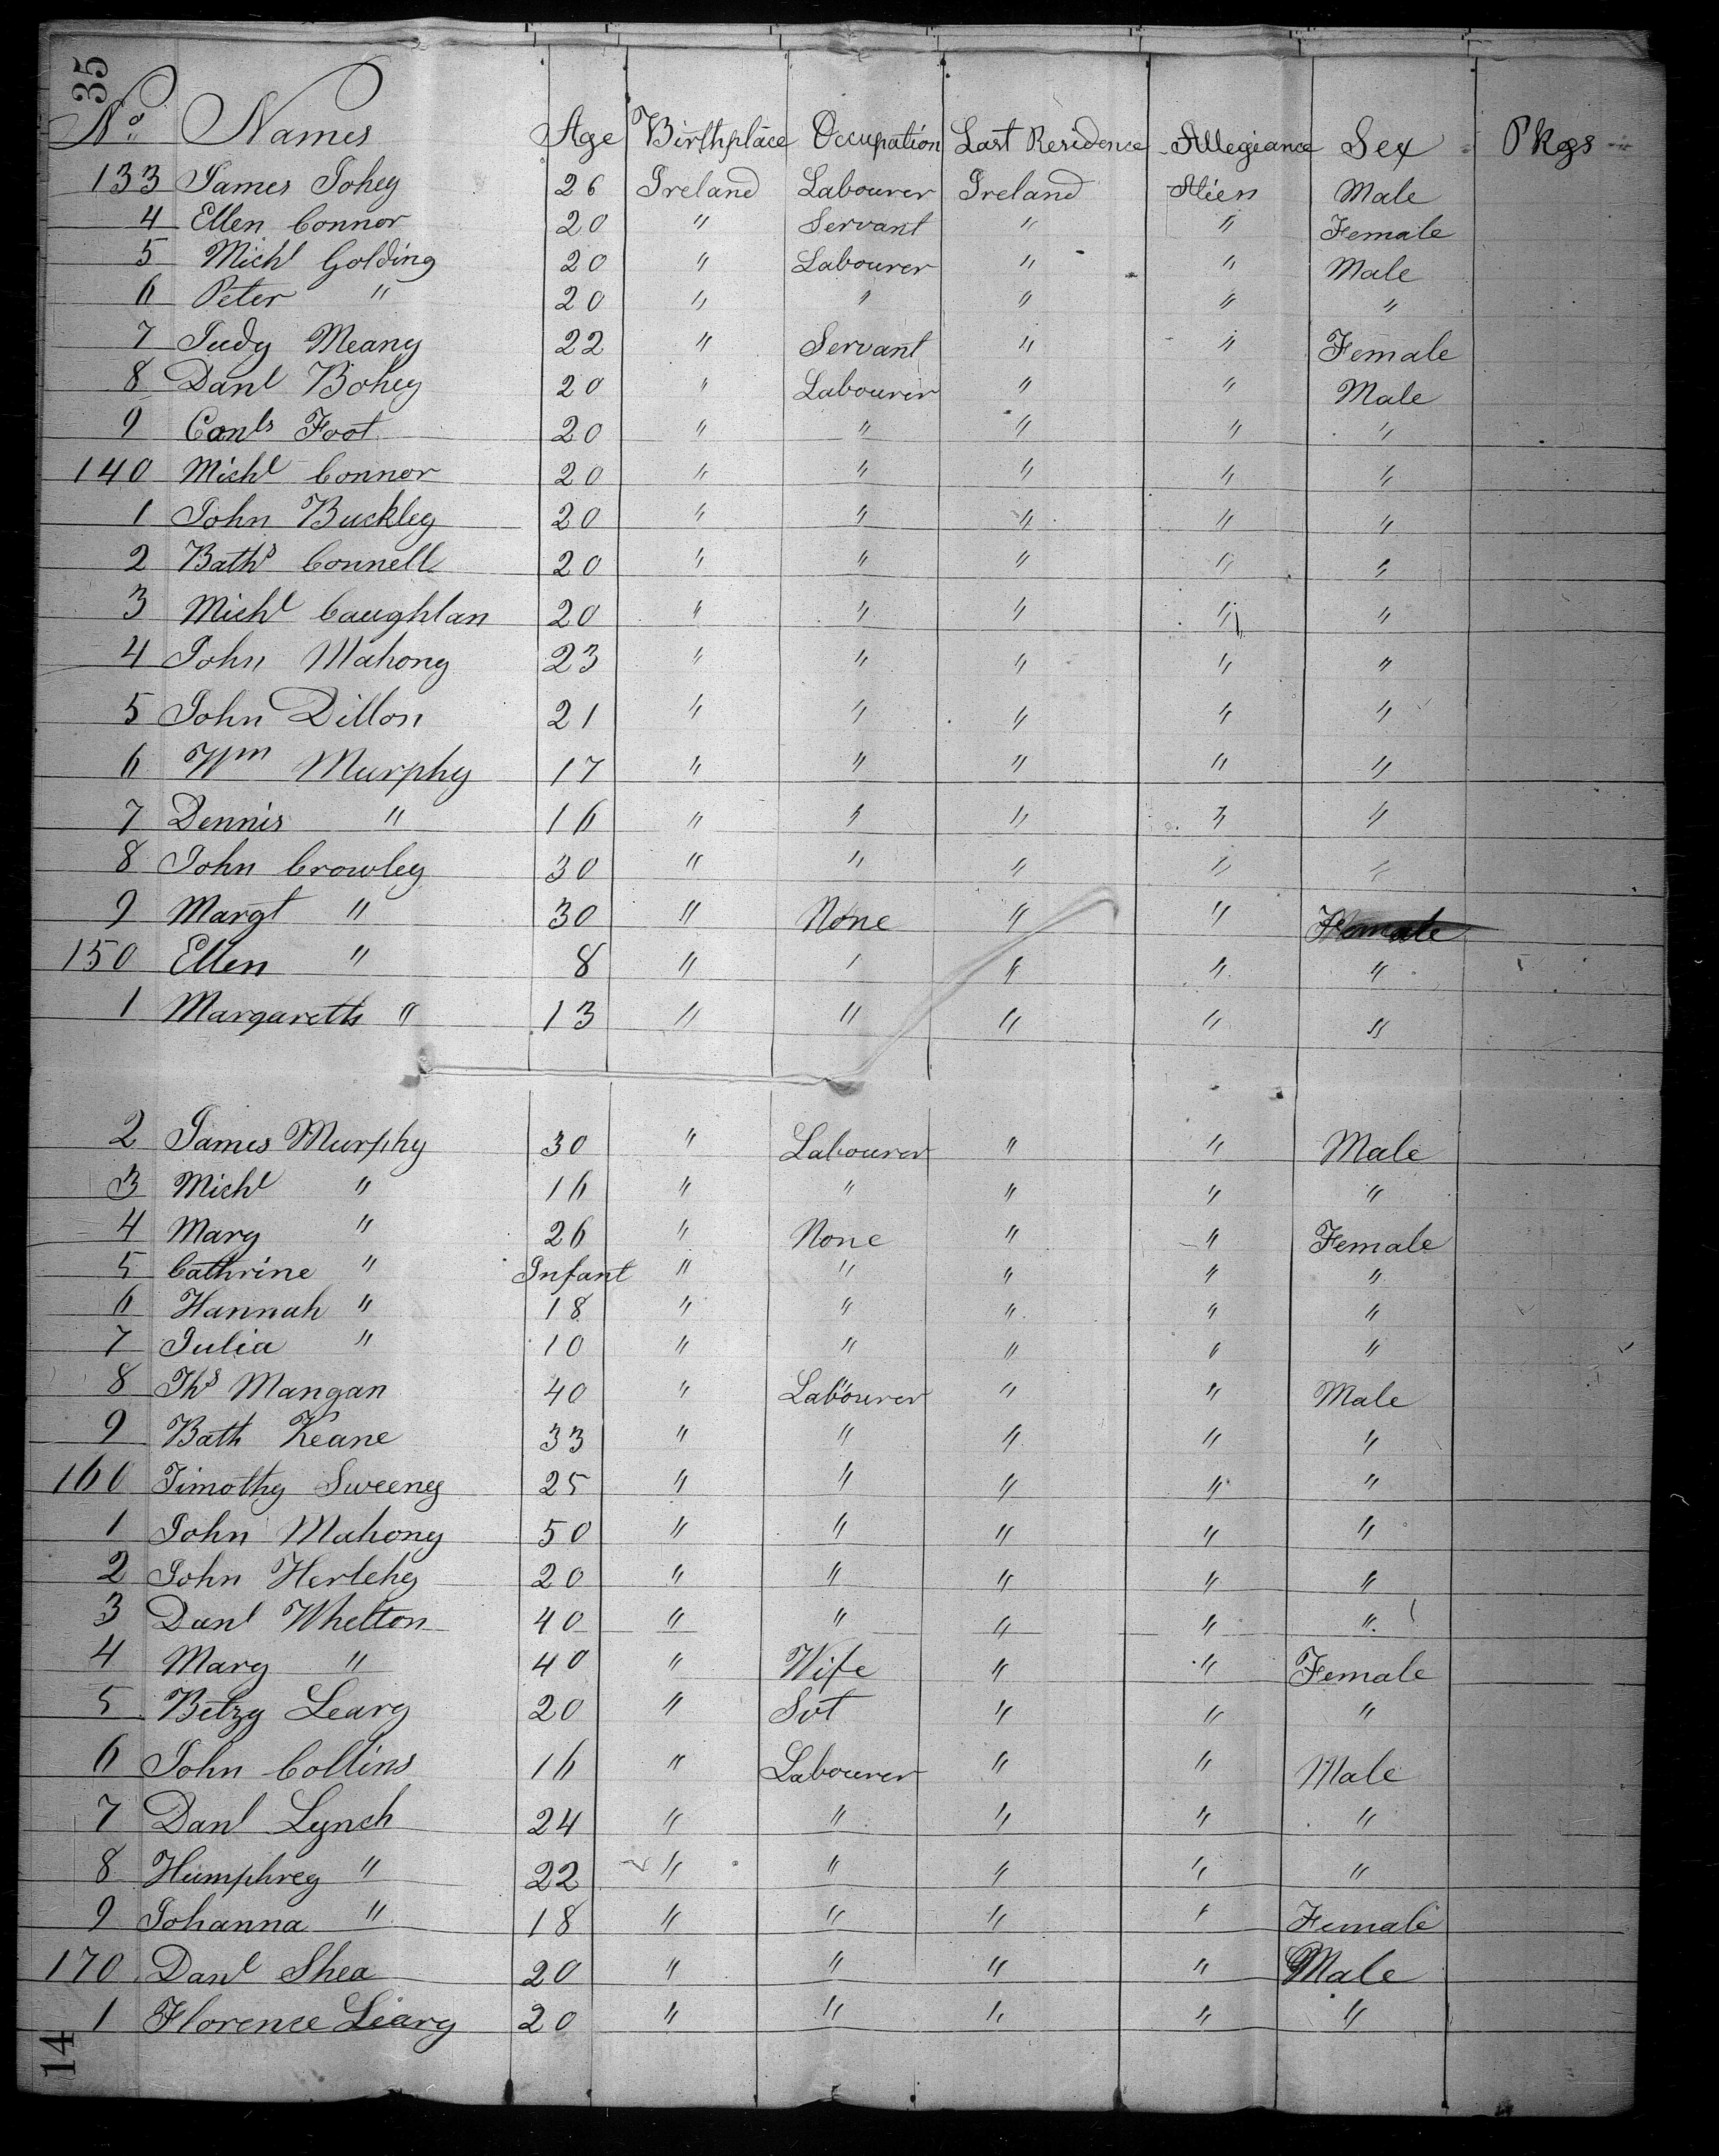 35
No. Names Age Birthplace Occupation Last Residence Allegiance Sex Pkgs
133 James Tohey 26 Ireland Labourer Ireland Alien Male
4 Ellen Connor 20 " Servant " " Female
5 Michl Golding 20 " Labourer " " Male
6 Peter " 20 " " " " "
7 Judy Meany 22 " Servant " " Female
8 Danl Bohey 20 " Labourer " " Male
9 Conls Foot 20 " " " " "
140 Michl Connor 20 " " " " "
1 John Buckley 20 " " " " "
2 Baths Connell 20 " " " " "
3 Michl Caughlan 20 " " " " "
4 John Mahony 23 " " " " "
5 John Dillon 21 " " " " "
6 Wm Murphy 17 " " " " "
7 Dennis " 16 " " " " "
8 John Crowley 30 " " " " "
9 Margt " 30 " None " " Female
150 Ellen " 8 " " " " "
1 Margareth " 13 " " " " "
2 James Murphy 30 " Labourer " " Male
3 Michl " 16 " " " " "
4 Mary " 26 " None " " Female
5 Cathrine " Infant " " " " "
6 Hannah " 18 " " " " "
7 Julia " 10 " " " " "
8 Ths Mangan 40 " Labourer " " Male
9 Bath Keane 33 " " " " "
160 Timothy Sweeney 25 " " " " "
1 John Mahony 50 " " " " "
2 John Herlehy 20 " " " " "
3 Danl Whelton 40 " " " " "
4 Mary " 40 " Wife " " Female
5 Betzy Leary 20 " Svt " " "
6 John Collins 16 " Labourer " " Male
7 Danl Lynch 24 " " " " "
8 Humphrey " 22 " " " " "
9 Johanna " 18 " " " " Female
170 Danl Shea 20 " " " " Male
1 Florence Leary 20 " " " " "
14